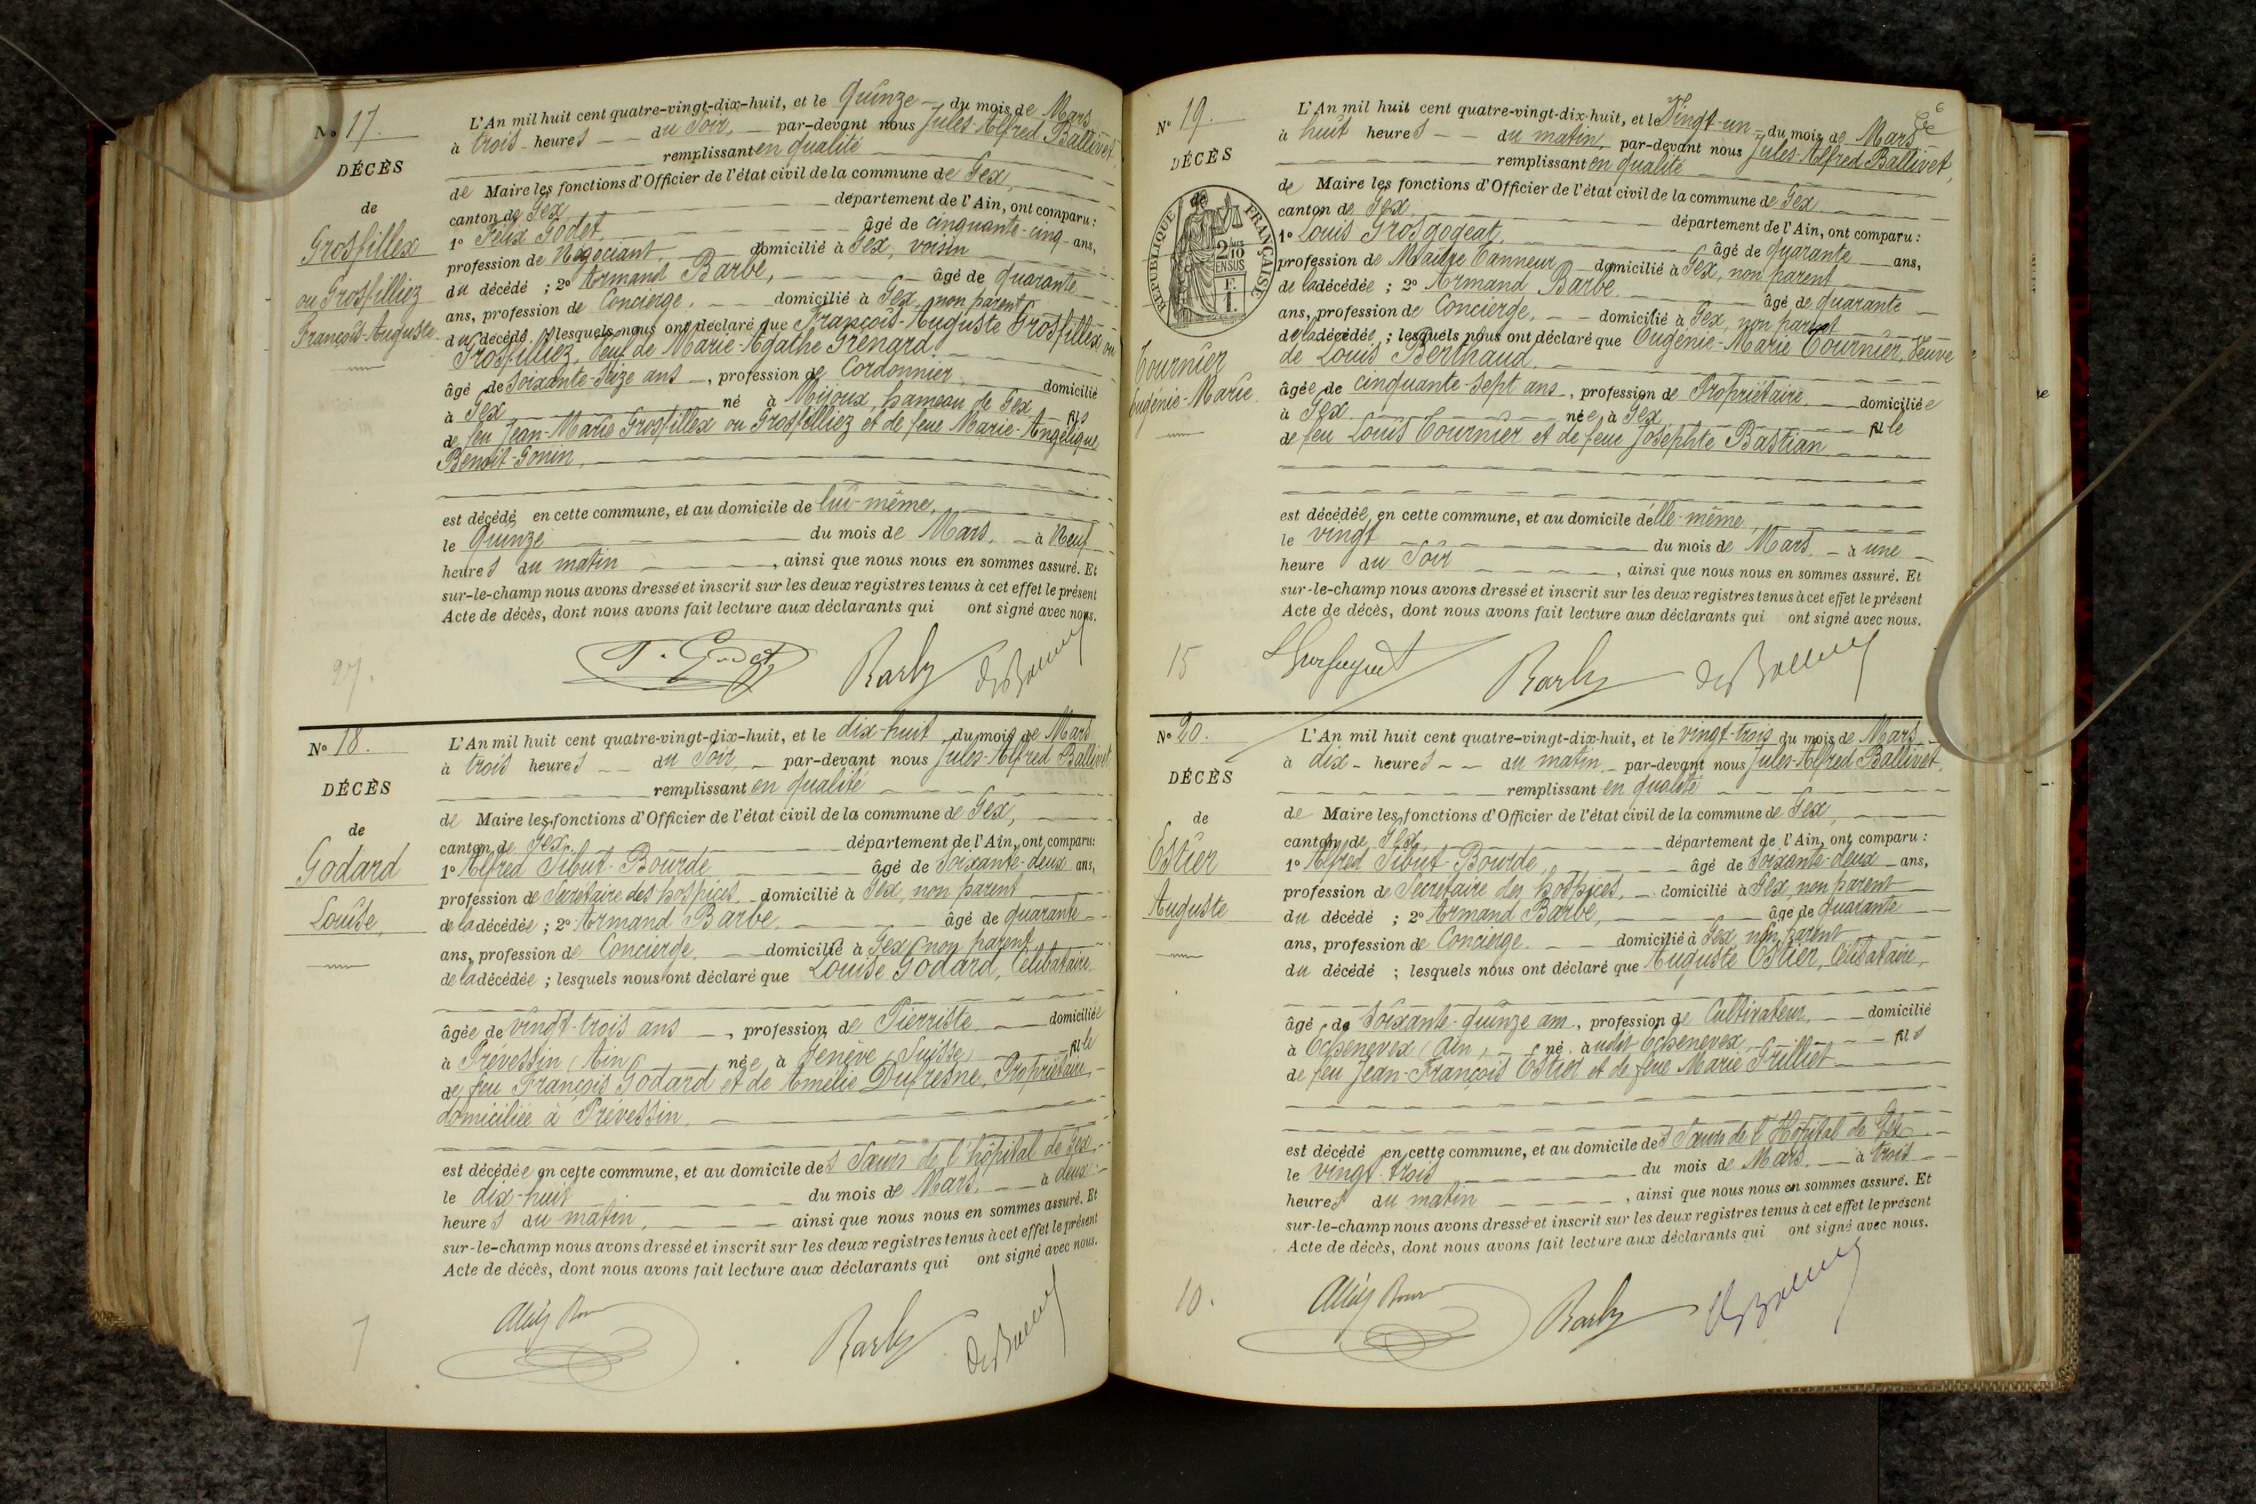 No 17.
DÉCÈS
de
Grosfillex
ou Grosfilliez
François-Auguste
L'An mil huit cent quatre-vingt-dix-huit, et le Quinze du mois de Mars
à trois heures du Soir, par-devant nous Jules-Alfred Ballivet,
remplissant en qualité
de Maire les fonctions d'Officier de l'état civil de la commune de Gex,
canton de Gex département de l'Ain, ont comparu :
1° Félix Godet, âgé de cinquante-cinq ans,
profession de Négociant, domicilié à Gex, voisin
du décédé ; 2° Armand Barbe, âgé de quarante
ans, profession de Concierge, domicilié à Gex, non parent
du décédé ; lesquels nous ont déclaré que François-Auguste Grosfillex ou
Grosfilliez, Veuf de Marie-Agathe Grenard,
âgé de soixante-seize ans, profession de Cordonnier domicilié
à Gex né à Mijoux, hameau de Gex fils
de feu Jean-Marie Grosfillex ou Grosfilliez et de feue Marie-Angélique
Benoit-Gonin,
est décédé en cette commune, et au domicile de lui-même,
le Quinze du mois de Mars, à Neuf
heures du matin, ainsi que nous nous en sommes assuré. Et
sur-le-champ nous avons dressé et inscrit sur les deux registres tenus à cet effet le présent
Acte de décès, dont nous avons fait lecture aux déclarants qui ont signé avec nous.
Godet Barbe
27.
No 18.
DÉCÈS
de
Godard
Louise,
L'An mil huit cent quatre-vingt-dix-huit, et le dix-huit du mois de Mars
à trois heures du Soir, par-devant nous Jules-Alfred Ballivet
remplissant en qualité
de Maire les fonctions d'Officier de l'état civil de la commune de Gex,
canton de Gex, département de l'Ain, ont comparu:
1° Alfred Sibut-Bourde âgé de soixante-deux ans,
profession de Secrétaire des hospices, domicilié à Gex, non parent
de la décédée ; 2° Armand Barbe, âgé de quarante
ans, profession de Concierge, domicilié à Gex, non parent
de la décédée ; lesquels nous ont déclaré que Louise Godard, Célibataire
âgée de vingt-trois ans, profession de Pierriste domiciliée
à Prévessin (Ain) née à Genève (Suisse) fille
de feu François Godard et de Amélie Dufresne, Propriétaire,
domiciliée à Prévessin.
est décédée en cette commune, et au domicile des Sœurs de l'hôpital de Gex,
le dix-huit du mois de Mars, à deux
heures du matin, ainsi que nous nous en sommes assuré. Et
sur-le-champ nous avons dressé et inscrit sur les deux registres tenus à cet effet le présent
Acte de décès, dont nous avons fait lecture aux déclarants qui ont signé avec nous.
Barbe
7
6
No 19.
DÉCÈS
RÉPUBLIQUE FRANÇAISE
2/10 EN SUS
Tournier
Eugénie-Marie
L'An mil huit cent quatre-vingt-dix-huit, et le Vingt-un du mois de Mars
à huit heures du matin, par-devant nous Jules-Alfred Ballivet,
remplissant en qualité
de Maire les fonctions d'Officier de l'état civil de la commune de Gex
canton de Gex département de l'Ain, ont comparu :
1° Louis Grosgogeat, âgé de quarante ans,
profession de Maître Tanneur domicilié à Gex, non parent
de la décédée ; 2° Armand Barbe âgé de quarante
ans, profession de Concierge, domicilié à Gex, non parent
de la décédée ; lesquels nous ont déclaré que Eugénie-Marie Tournier, Veuve
de Louis Berthaud
âgée de cinquante-sept ans, profession de Propriétaire domiciliée
à Gex née à Gex fille
de feu Louis Tournier et de feue Josephte Bastian
est décédée en cette commune, et au domicile d'elle-même,
le vingt du mois de Mars à une
heure du Soir, ainsi que nous nous en sommes assuré. Et
sur-le-champ nous avons dressé et inscrit sur les deux registres tenus à cet effet le présent
Acte de décès, dont nous avons fait lecture aux déclarants qui ont signé avec nous.
Barbe
15
No 20.
DÉCÈS
de
Estier
Auguste
L'An mil huit cent quatre-vingt-dix-huit, et le vingt-trois du mois de Mars
à dix heures du matin, par-devant nous Jules-Alfred Ballivet,
remplissant en qualité
de Maire les fonctions d'Officier de l'état civil de la commune de Gex,
canton de Gex département de l'Ain, ont comparu :
1° Alfred Sibut-Bourde, âgé de soixante-deux ans,
profession de Secrétaire des hospices, domicilié à Gex, non parent
du décédé ; 2° Armand Barbe, âgé de quarante
ans, profession de Concierge domicilié à Gex, non parent
du décédé ; lesquels nous ont déclaré que Auguste Estier, Célibataire,
âgé de Soixante-quinze ans, profession de Cultivateur domicilié
à Echenevex (Ain), né audit Echenevex, fils
de feu Jean-François Estier et de feue Marie Frilliet
est décédé en cette commune, et au domicile des Sœurs de l'Hôpital de Gex
le vingt-trois du mois de Mars, à trois
heures du matin, ainsi que nous nous en sommes assuré. Et
sur-le-champ nous avons dressé et inscrit sur les deux registres tenus à cet effet le présent
Acte de décès, dont nous avons fait lecture aux déclarants qui ont signé avec nous.
Barbe
10.